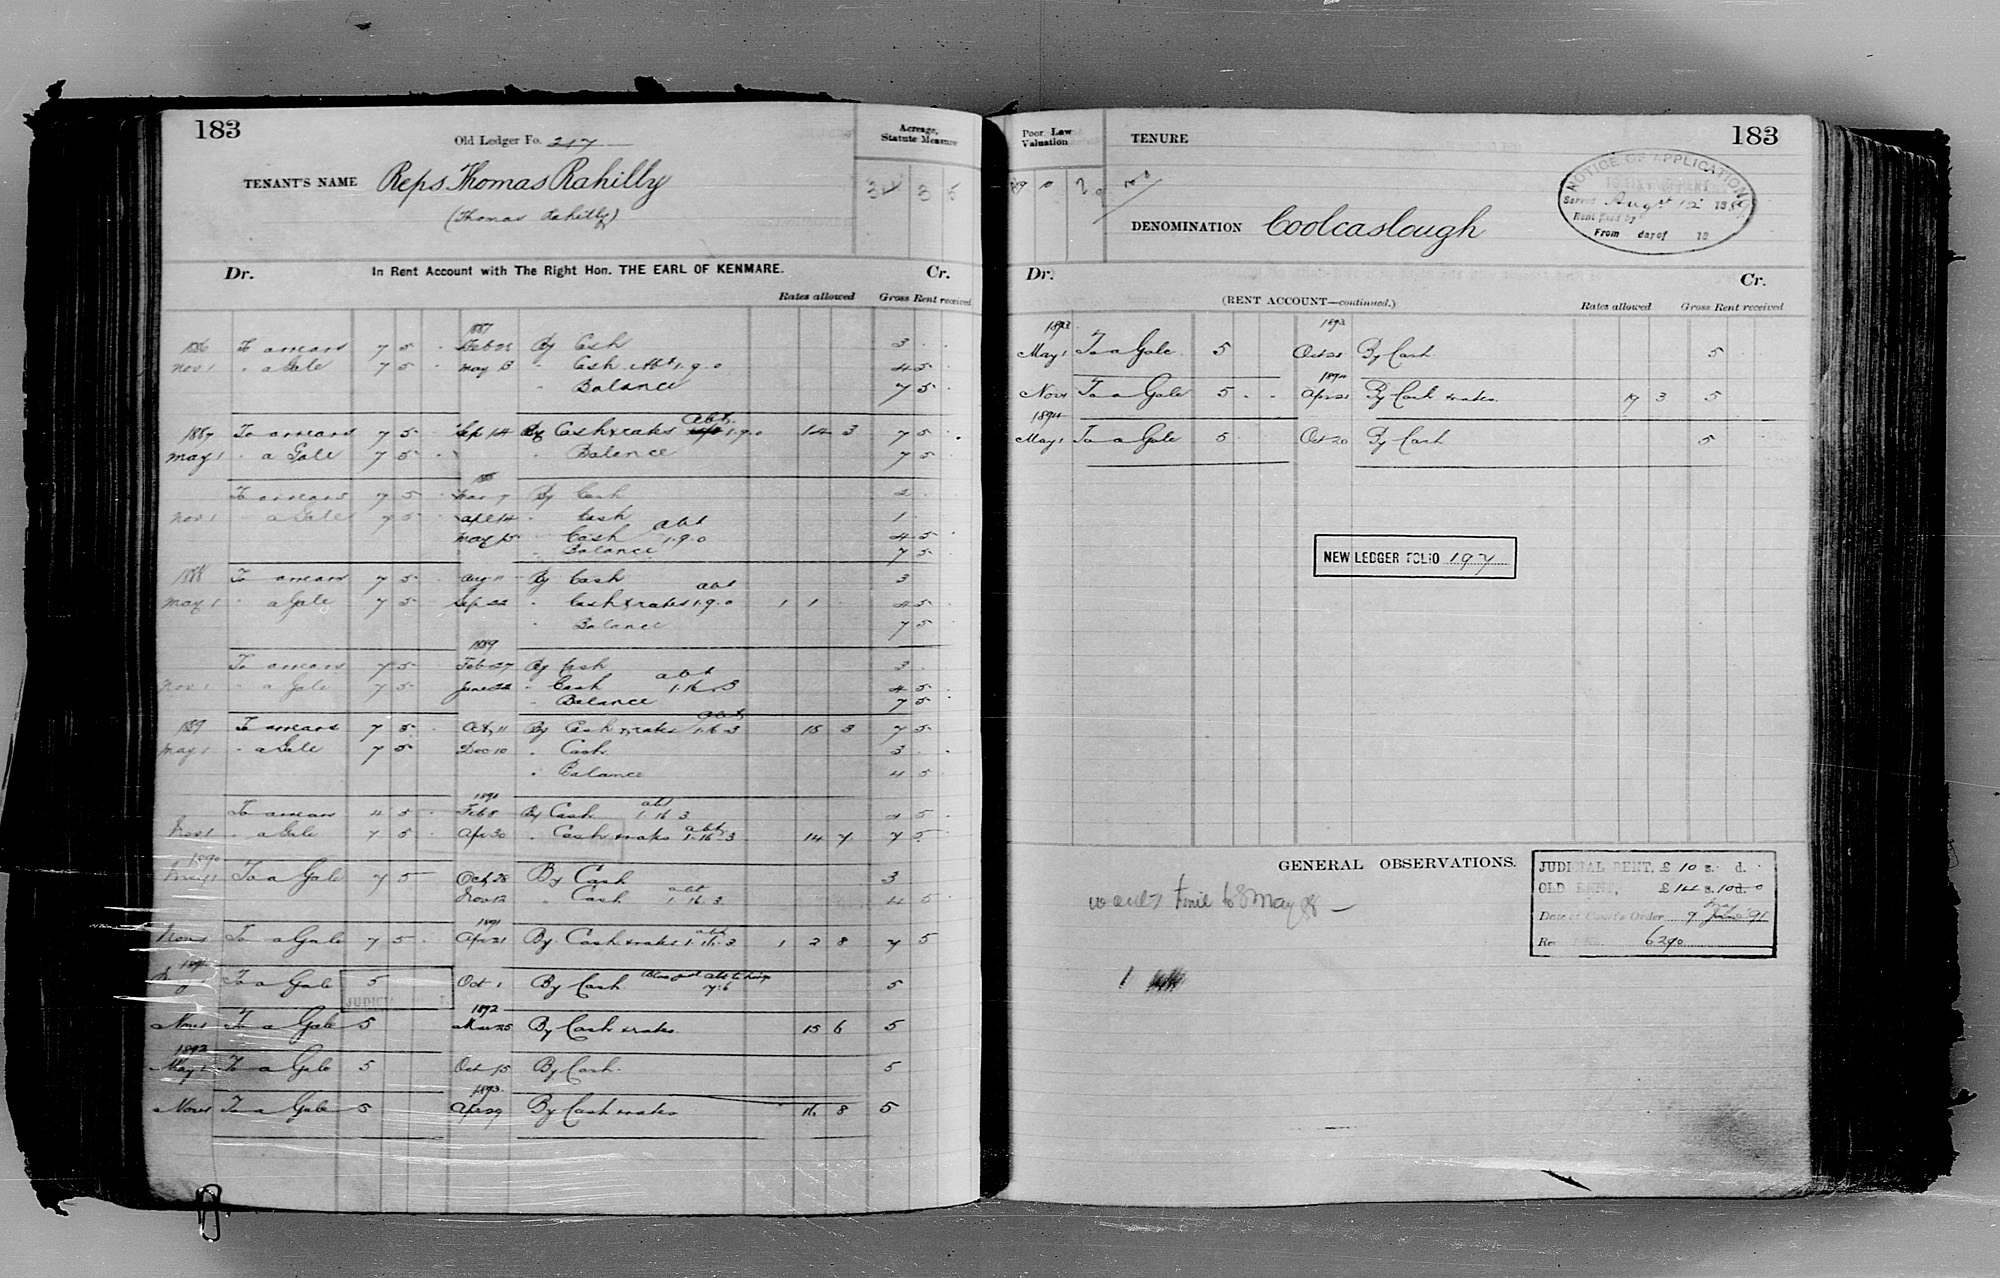 183
Old Ledger Fo. 217
Acreage, Statute Measure
TENANT'S NAME Reps Thomas Rahilly
(Thomas Rahilly)
3 5
Dr. In Rent Account with The Right Hon. THE EARL OF KENMARE. Cr.
Rates allowed Gross Rent received
1887
1886 To arrears 7 5 . Feb By Cash 3 . .
Nov 1 " a Gale 7 5 . May 13 " Cash Abt 1.9.0 4 5 .
" Balance 7 5 .
1887 To arrears 7 5 . Sep 14 By Cash & rates Abt 1.9.0 14 3 7 5 .
May 1 " a Gale 7 5 . " Balance 7 5
1888
To arrears 7 5 . Mar 7 By Cash 2 .
Nov 1 a Gale 7 5 . Apl 14 " Cash 1 .
May 15 " Cash abt 1.9.0 4 5 .
" Balance 7 5 .
1888 To arrears 7 5 . Aug 11 By Cash 3
May 1 a Gale 7 5 . Sep 22 " Cash & rates abt 1.9.0 1 1 . 4 5 .
" Balance 7 5
1889
To arrears 7 5 . Feb 27 By Cash 3 .
Nov 1 " a Gale 7 5 . June 22 " Cash abt 1.16.3 4 5 .
" Balance 7 5 .
1889 To arrears 7 5 . Oct 11 By Cash & rates abt 1.16.3 15 3 7 5
May 1 " a Gale 7 5 Dec 10 " Cash 3 .
" Balance 4 5
1890
To arrears 4 5 . Feb 8 By Cash abt 1.16.3 4 5
Nov 1 " a Gale 7 5 . Apr 30 " Cash & rates abt 1.16.3 14 7 7 5
1890
May 1 To a Gale 7 5 Oct 28 By Cash 3
Nov 12 " Cash abt 1.16.3 4 5
1891
Nov 1 To a Gale 7 5 . Apr 21 By Cash & rates abt 1.16.3 1 2 8 7 5
To a Gale 5 Oct 1 By Cash abt 7.6 5
JUDICIAL
1892
Nov 1 To a Gale 5 Mar 25 By Cash & rates 15 6 5
1892
May 1 To a Gale 5 Oct 15 By Cash 5
1893
Nov 1 To a Gale 5 Apr 29 By Cash & rates 16 8 5
Poor Law Valuation
TENURE
183
NOTICE OF APPLICATION
Served August 12 1889
Rent fixed by
From day of 18
DENOMINATION Coolcaslough
Dr. Cr.
(RENT ACCOUNT—continued.) Rates allowed Gross Rent received
1893 1893
May 1 To a Gale 5 Oct 21 By Cash 5
1894
Nov 1 To a Gale 5 . . Apr 21 By Cash & rates 17 3 5
1894
May 1 To a Gale 5 Oct 20 By Cash 5
NEW LEDGER FOLIO 197
GENERAL OBSERVATIONS.
wants time to 8 May 88
1
JUDICIAL RENT, £ 10 s. d.
OLD RENT, £ 14 s. 10 d. 0
Date of Court's Order 9 '91
6290